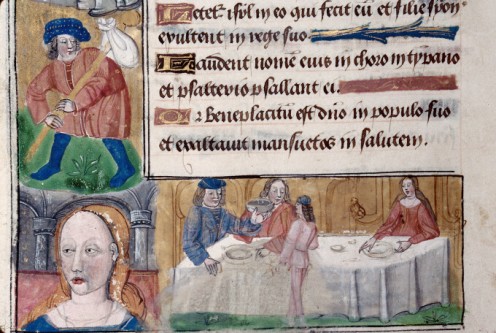 Letet᷑ isrl̄ in eo qui fecit eū et filie syon
exultent in rege suo
Laudent nomē eius in choro in tȳpano
et psalterio psallant ei.
Qr̄ beneplacitū est dn̄o in populo suo
et exaltauit mansuetos in salutem.